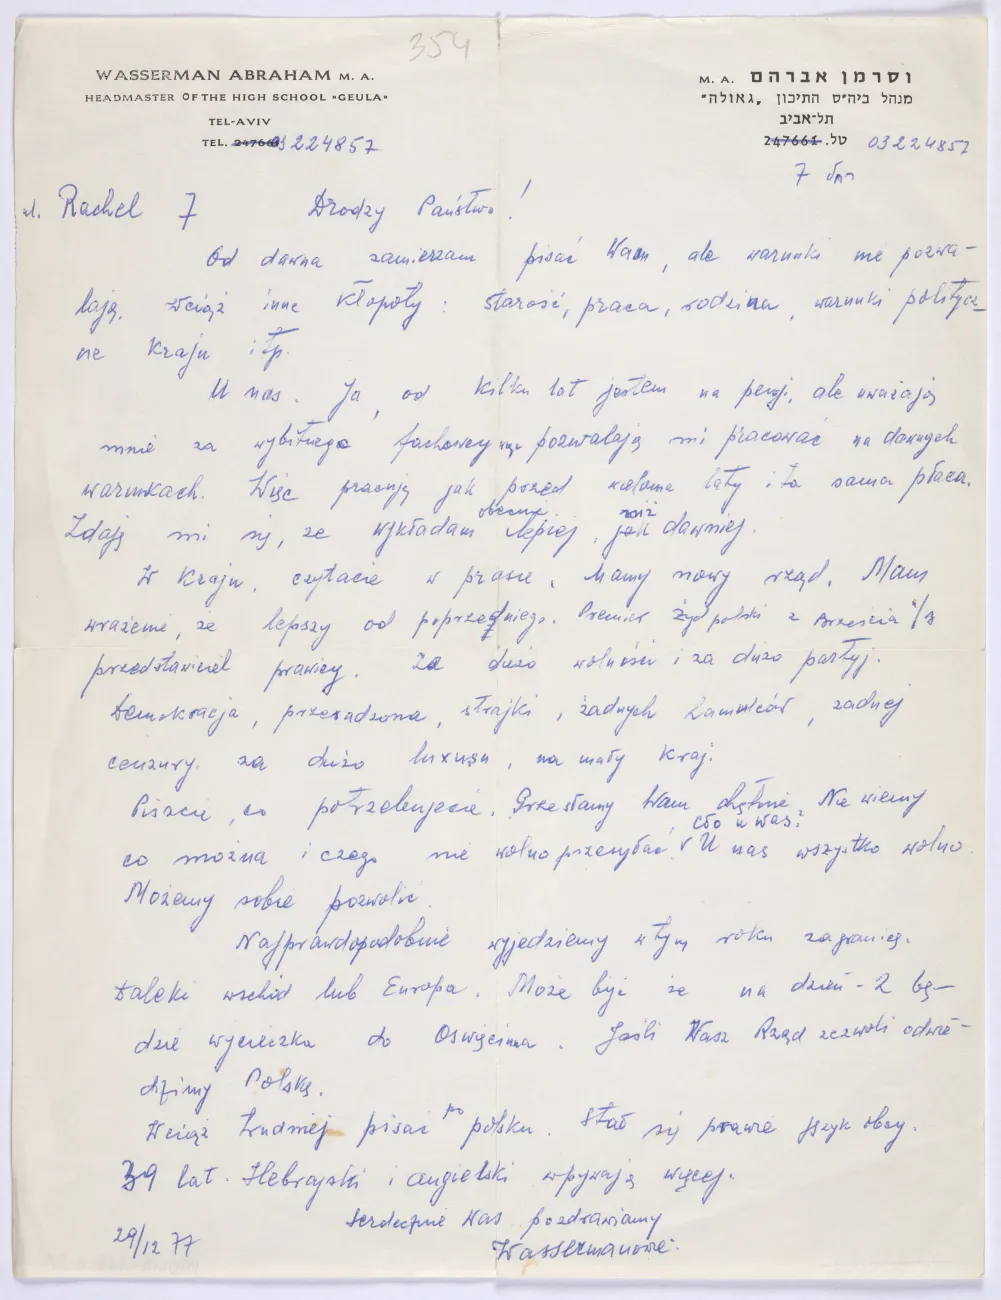 354
WASSERMAN ABRAHAM M. A.
HEADMASTER OF THE HIGH SCHOOL "GEULA"
TEL-AVIV
TEL. 247661 03224857
וסרמן אברהם M. A.
מנהל ביה״ס התיכון „גאולה"
תל-אביב
טל. 247661 03224857
רחל 7
ul. Rachel 7 Drodzy Państwo!
Od dawna zamierzam pisać Wam, ale warunki nie pozwa-
lają. Wciąż inne kłopoty: starość, praca, rodzina, warunki politycz-
ne kraju itp.
U nas. Ja, od kilku lat jestem na pensji, ale uważają
mnie za wybitnego fachowcy więc pozwalają mi pracować na dawnych
warunkach. Więc pracuję jak przed wieloma laty i ta sama płaca.
Zdaję mi się, że wykładam obecnie lepiej, jak niż dawniej.
W kraju, czytacie w prasie. Mamy nowy rząd. Mam
wrażenie, że lepszy od poprzedniego. Premier Żyd polski z Brześcia n/B
przedstawiciel prawicy. Za dużo wolności i za dużo partyj.
Demokracja, przesadzona, strajki, żadnych hamulców, żadnej
cenzury. za dużo luxusu, na mały kraj.
Piszcie, co potrzebujecie. Przesłamy Wam chętnie. Nie wiemy
co można i czego nie wolno przesyłać. Cło u Was? U nas wszystko wolno.
Możemy sobie pozwolić.
Najprawdopodobnie wyjedziemy w tym roku zagranicę.
Daleki wschód lub Europa. Może być że na dzień - 2 bę-
dzie wycieczka do Oswięcima. Jeśli Wasz Rząd zezwoli odwie-
dzimy Polskę.
Wciąż trudniej pisać po polsku. Stał się prawie język obcy.
39 lat. Hebrajski i angielski wpływają więcej.
Serdecznie Was pozdrawiamy
29/12 77 Wassermanowie.